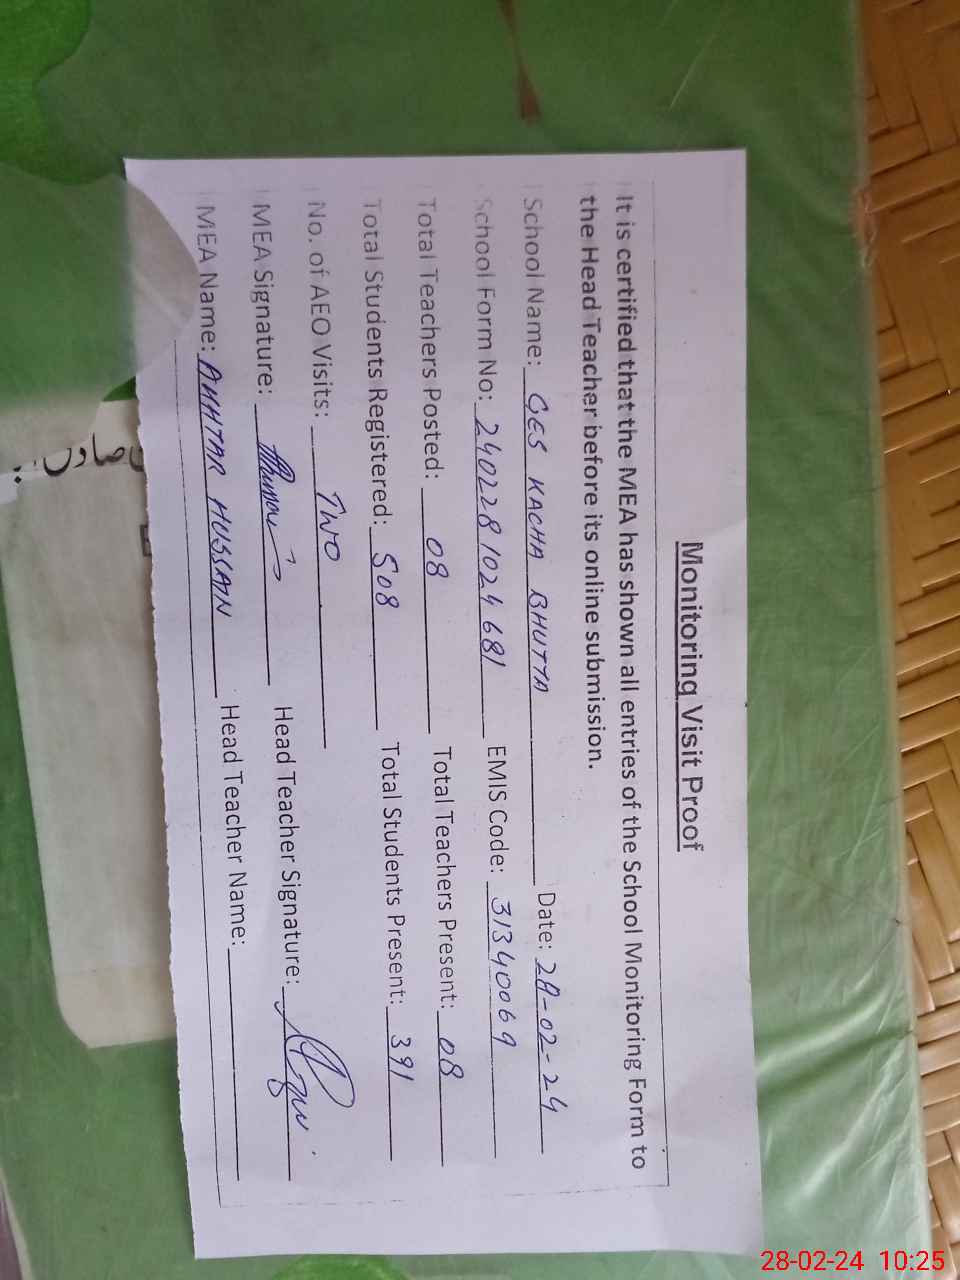 Monitoring Visit Proof
It is certified that the MEA has shown all entries of the School Monitoring Form to
the Head Teacher before its online submission.
School Name: GES KACHA BHUTTA Date: 28-02-24
School Form No: 2402281024681 EMIS Code: 31340069
Total Teachers Posted: 08 Total Teachers Present: 08
Total Students Registered: 508 Total Students Present: 391
No. of AEO Visits: TWO
MEA Signature: Head Teacher Signature:
MEA Name: AKHTAR HUSSAN Head Teacher Name:
28-02-24 10:25